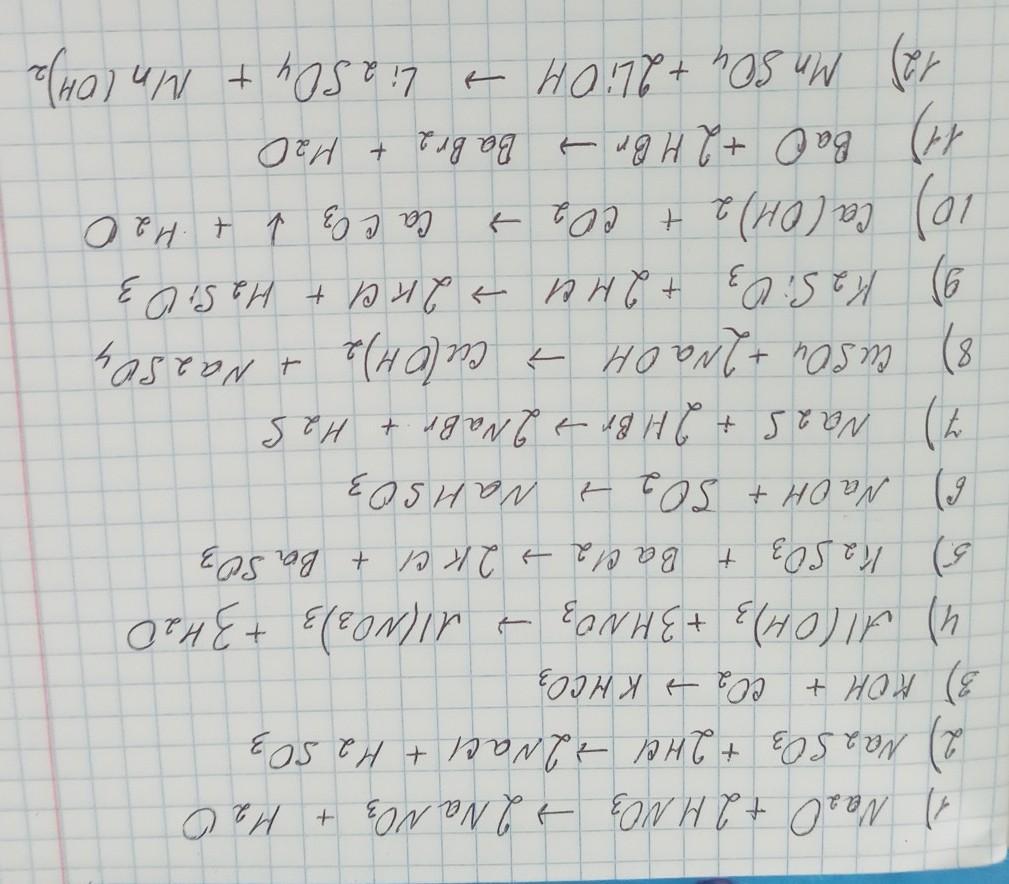 1) Na2O + 2HNO3 → 2NaNO3 + H2O
2) Na2SO3 + 2HCl → 2NaCl + H2SO3
3) KOH + CO2 → KHCO3
4) Al(OH)3 + 3HNO3 → Al(NO3)3 + 3H2O
5) K2SO3 + BaCl2 → 2KCl + BaSO3
6) NaOH + SO2 → NaHSO3
7) Na2S + 2HBr → 2NaBr + H2S
8) CuSO4 + 2NaOH → Cu(OH)2 + Na2SO4
9) K2SiO3 + 2HCl → 2KCl + H2SiO3
10) Ca(OH)2 + CO2 → CaCO3 ↓ + H2O
11) BaO + 2HBr → BaBr2 + H2O
12) MnSO4 + 2LiOH → Li2SO4 + Mn(OH)2